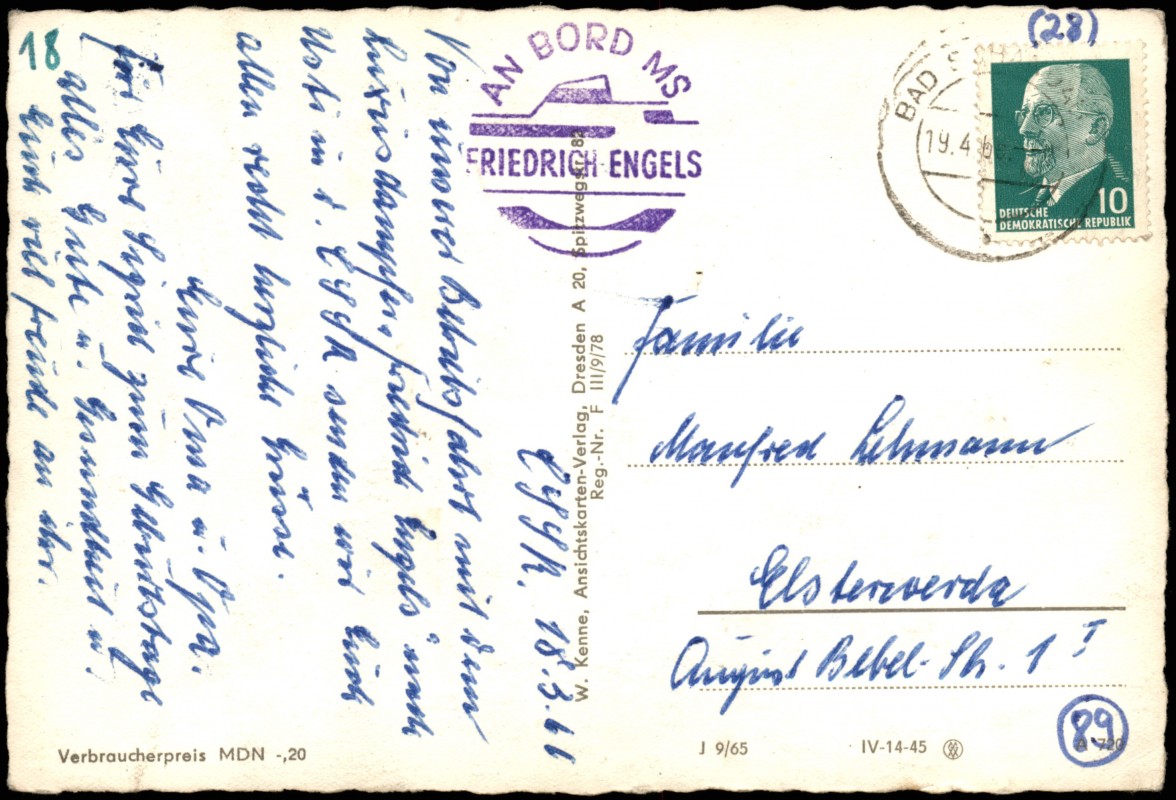 18
(28)
AN BORD MS
FRIEDRICH ENGELS
BAD
19.4.66
10
DEUTSCHE
DEMOKRATISCHE REPUBLIK
ČSSR. 18.3.66
Von unserer Betriebsfahrt mit dem
Luxusdampfer „Friedrich Engels" nach
Usti in d. ČSSR senden wir Euch
allen recht herzliche Grüsse.
Eure Oma u. Opa.
Für Eure Sigrid zum Geburtstage
alles Gute u. Gesundheit u.
Euch viel Freude an ihr.
W. Kenne, Ansichtskarten-Verlag, Dresden A 20, Spitzwegstr. 82
Reg.-Nr. F III/9/78
Familie
Manfred Lehmann
Elsterwerda
August Bebel-Str. 1 I
Verbraucherpreis MDN -,20
J 9/65
IV-14-45
89
A 720